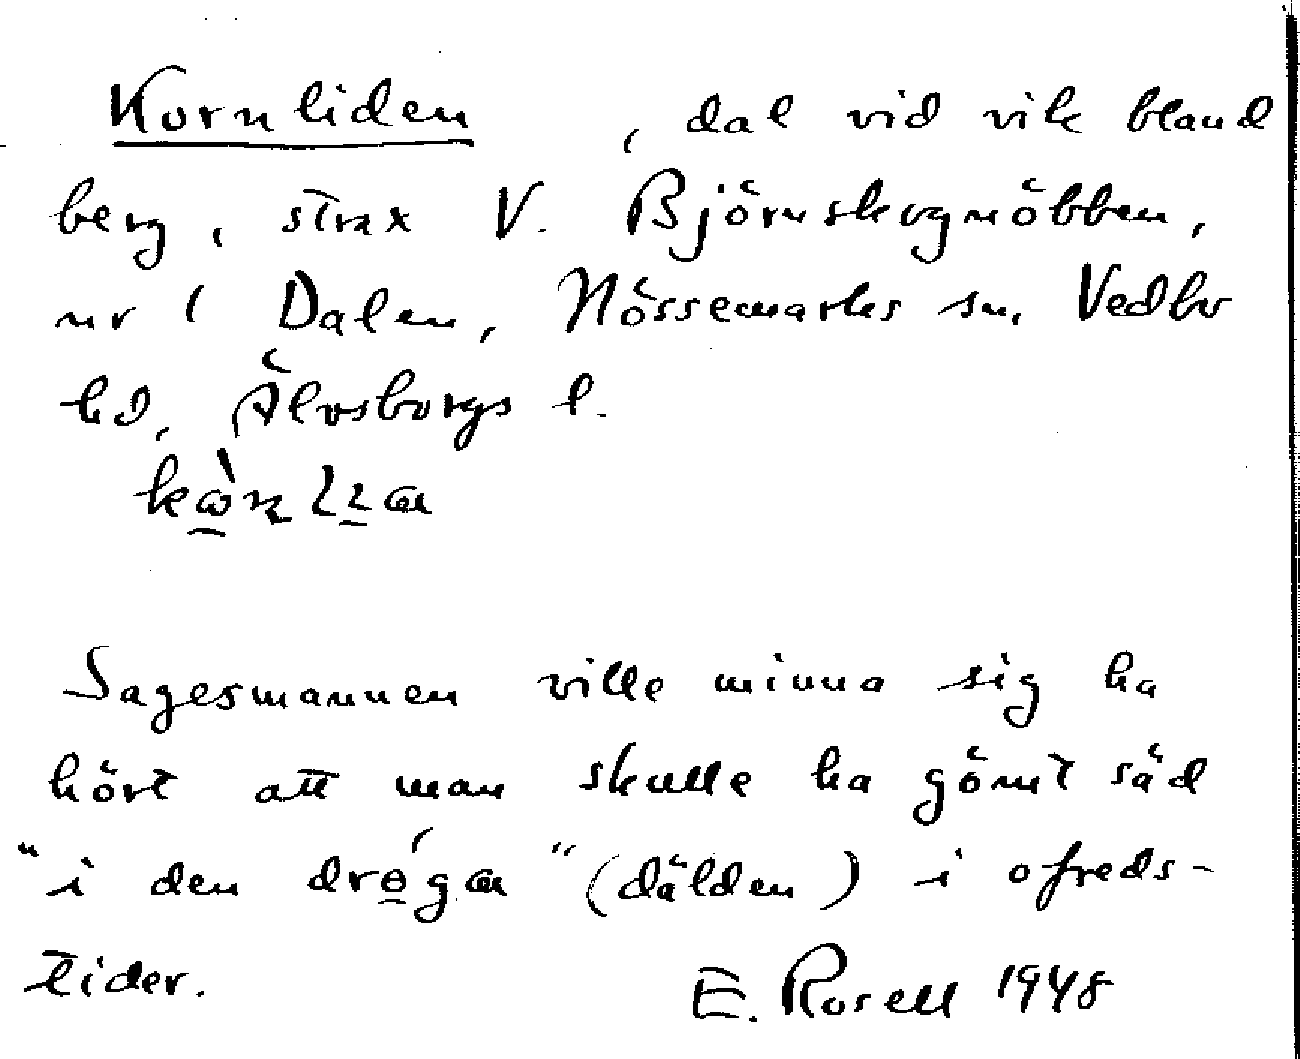 Kornliden , dal vid vik bland
berg, strax V. Björnskognöbben,
nr 1 Dalen, Nössemarks sn, Vedbo
hd, Älvsborgs l.
Sagesmannen ville minna sig ha
hört att man skulle ha gömt säd
"i den drǿgæn" (dälden) i ofreds-
tider. E. Rosell 1948